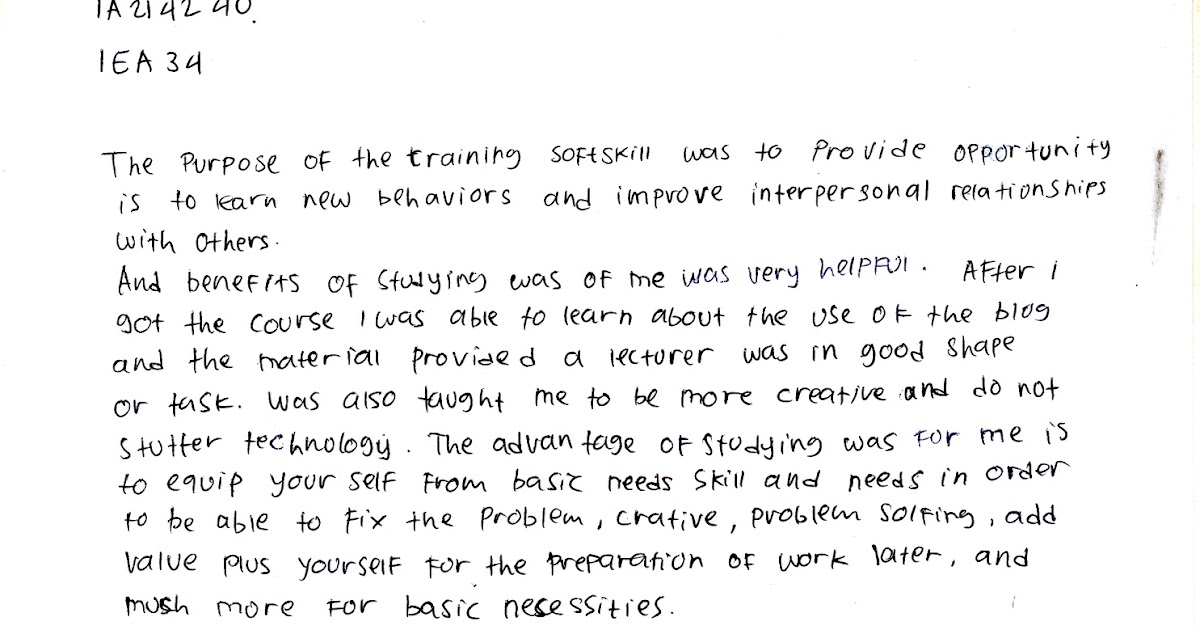 1A 21 42 40.
1EA 34
The Purpose of the training softskill was to Provide opportunity
is to learn new behaviors and improve interpersonal relationships
with others.
And benefits of studying was of me was very helpful. After i
got the course I was able to learn about the use of the blog
and the material provided a lecturer was in good shape
or task. Was also taught me to be more creative and do not
stutter technology. The advantage of studying was for me is
to equip your self from basic needs skill and needs in order
to be able to fix the problem, crative, problem solfing, add
value plus yourself for the preparation of work later, and
mush more for basic necessities.